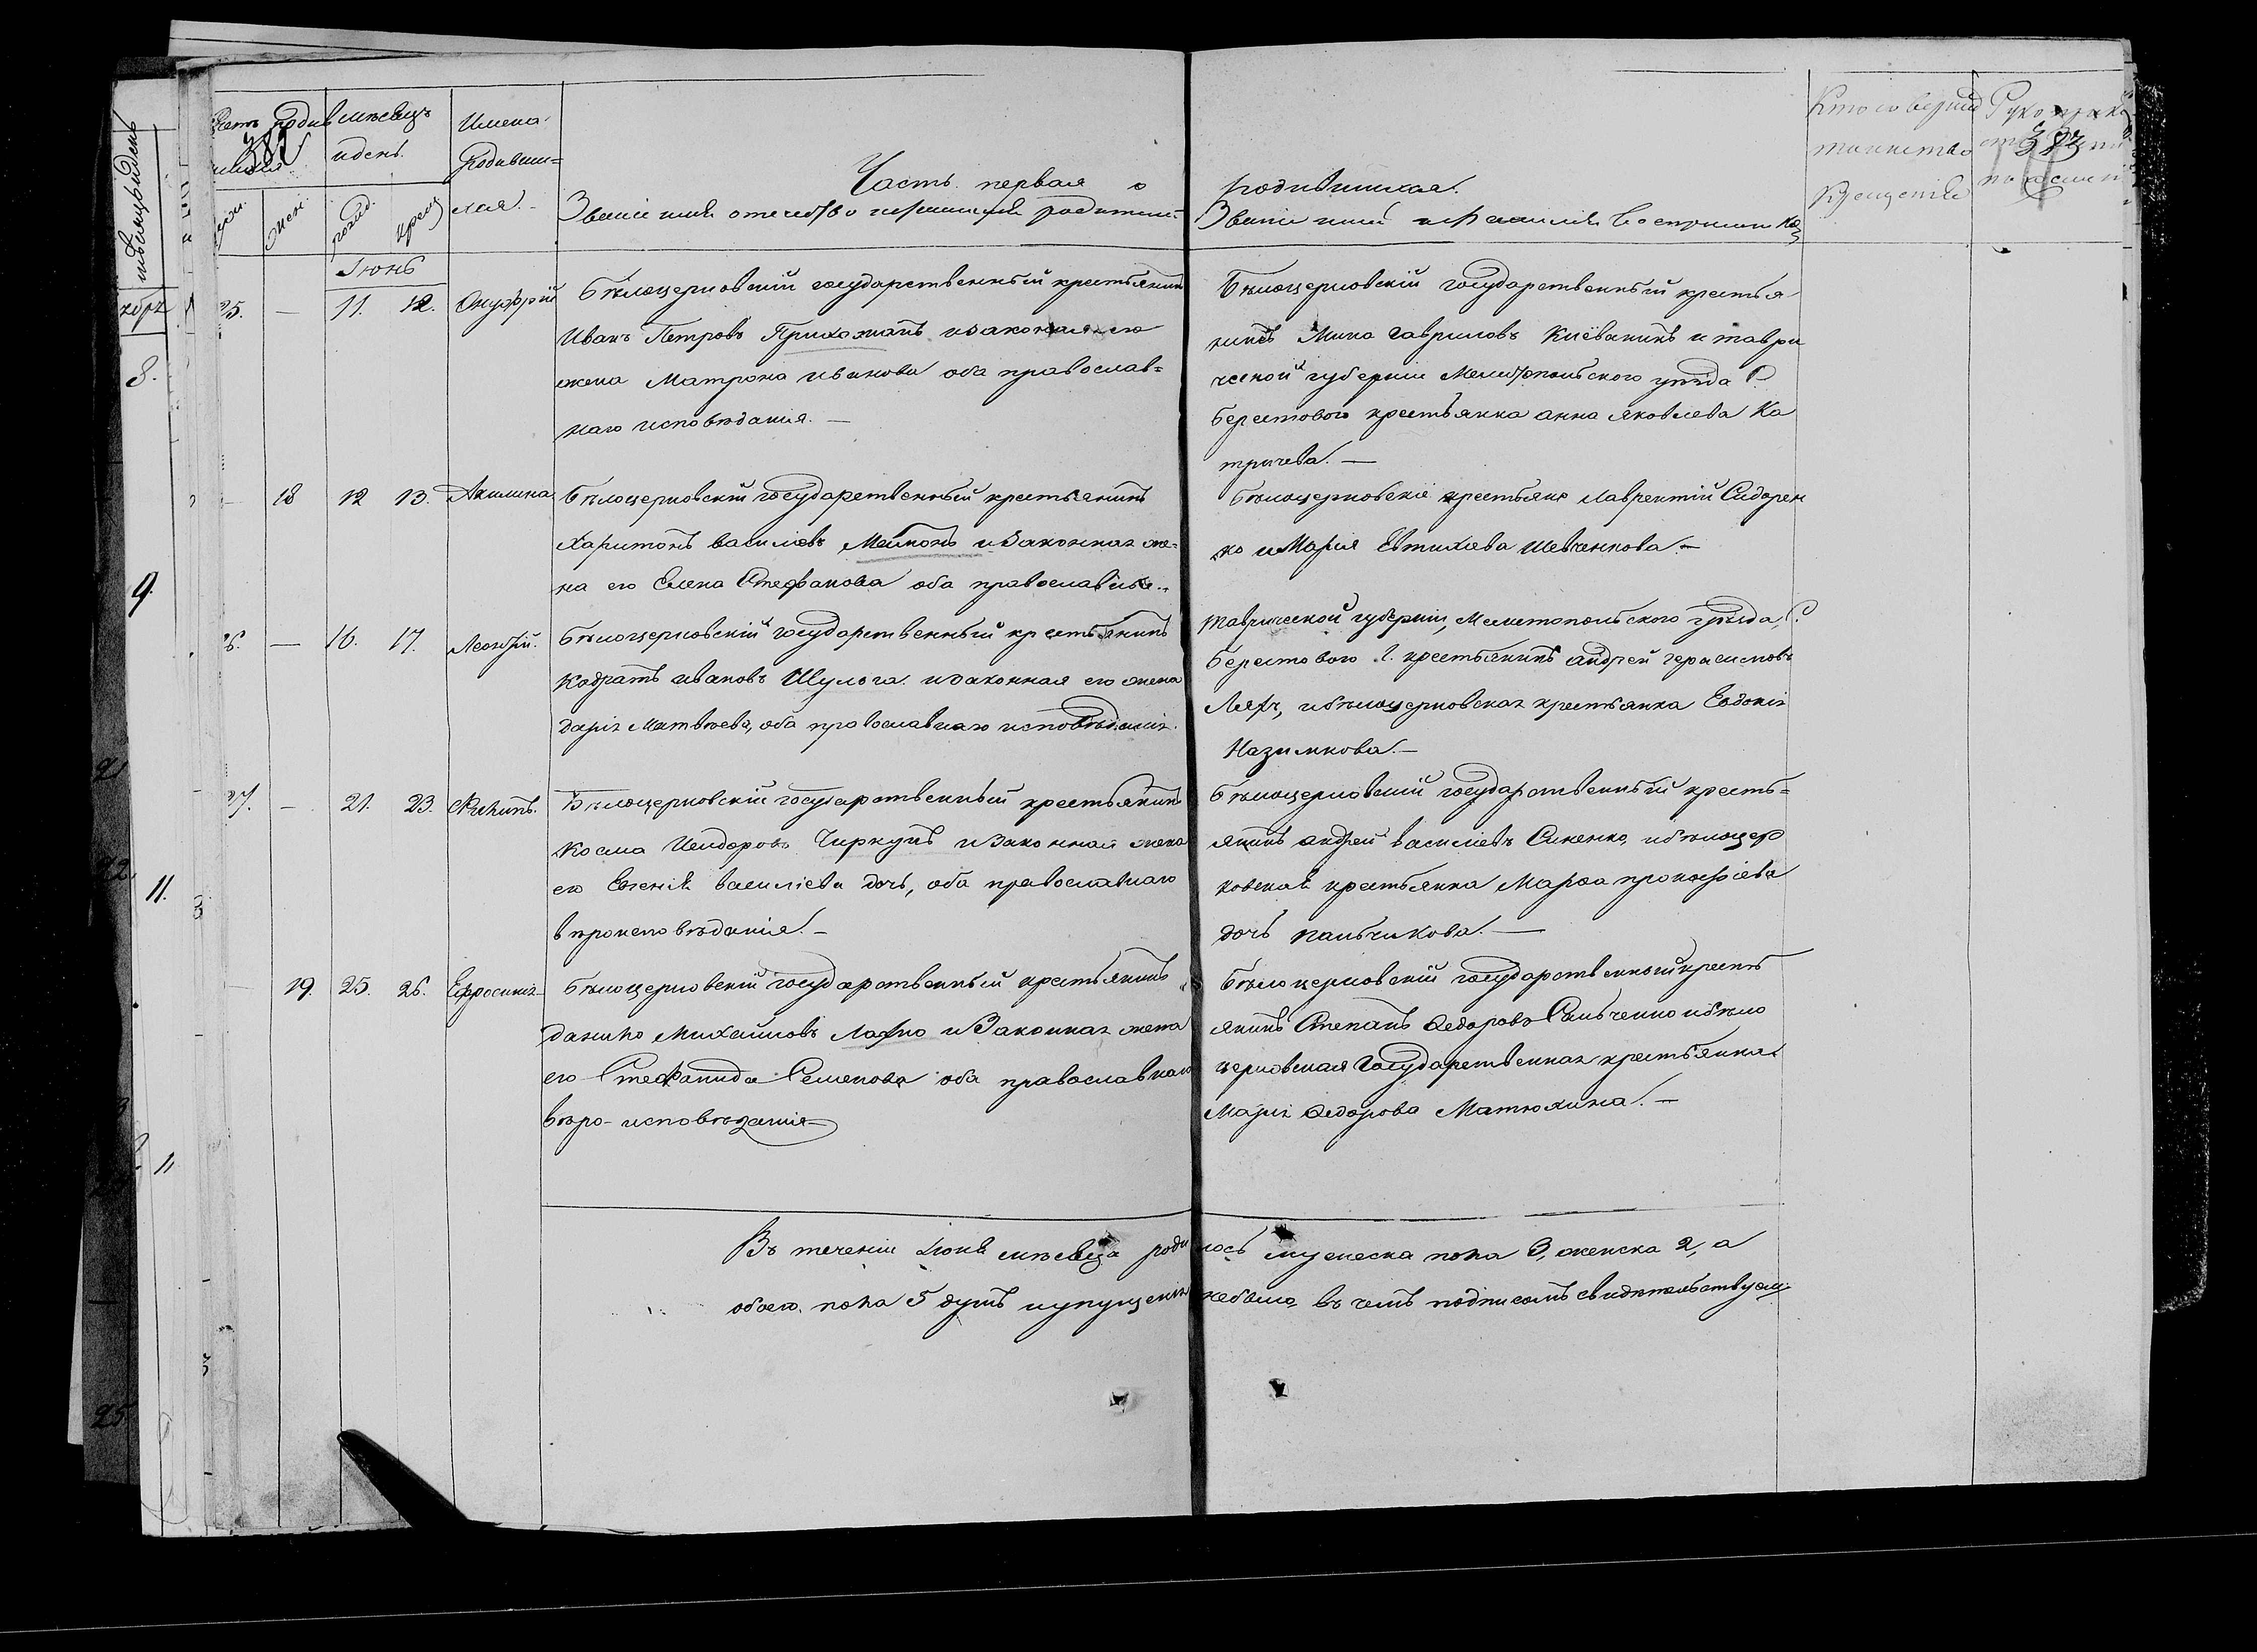 мѣсяцъ
и день
Имена
Родивши=
хся.
Часть первая о родившихся.
Званіе имя отечество и фамилія родителей
Званіе имя и фамилія Воспріемниковъ
Кто совершалъ
таинство
Крещенія
Рукоприкла
382
383
муж.
жен.
рожд.
крещ.
Іюнь
25. — 11. 12. Онуфрій
Бѣлоцерковскій государственный крестьянинъ
Иванъ Петровъ Прихожанъ и законная его
жена Матрона Иванова оба православ=
наго исповѣданія. —
Бѣлоцерковскій государственный крестья
нинъ Мина Гавриловъ Кіёванинъ и таври
ческой губерніи Мелитопольского уѣзда С.
Берестового крестьянка Анна Яковлева Ка
тричева. —
— 18 12 13. Акилина
Бѣлоцерковскій государственный крестьянинъ
Харитонъ Василіевъ и Законная же=
на его Елена Стефанова оба православные.
Бѣлоцерковскіе крестьяне Лаврентій Сидорен
ко и Марія Евтихіева Шевченкова. —
26. — 16. 17. Леонтій.
Бѣлоцерковскій государственный крестьянинъ
Кодратъ Ивановъ Шульга и законная его жена
Дарія Матвѣева, оба православнаго исповѣданія.
Таврической губерніи, Мелитопольского уѣзда, С.
Берестового крестьянинъ Андрей Герасимовъ
Ляхъ, и бѣлоцерковская крестьянка Евдокія
Назимкова. —
27. — 21. 23.
Бѣлоцерковскій государственный крестьянинъ
Косма Исидоровъ Чиркунъ и Законная жена
его Евгенія Василіева дочь, оба православнаго
вѣроисповѣданія. —
Бѣлоцерковскій государственный кресть=
янинъ Андрей Василіевъ Синенко, и бѣлоцер
ковская крестьянка Марѳа Прокофіева
дочь Пальчикова. —
— 19. 25. 26. Ефросинія
Бѣлоцерковскій государственный крестьянинъ
Данило Михаиловъ Лахно и Законная жена
его Стефанида Семенова оба православнаго
вѣро-исповѣданія
Бѣлоцерковскій государственный крестъ
янинъ Степанъ Ѳедоровъ Сильченко и бѣло
церковская Государственная крестьянка
Марія Ѳедорова Матюхина. —
Въ теченіи Іюня мѣсяца родилось мужеска пола 3, женска 2, а
обоего пола 5 душъ и упущенія небыло, въ чемъ подписомъ свидѣтельствуем